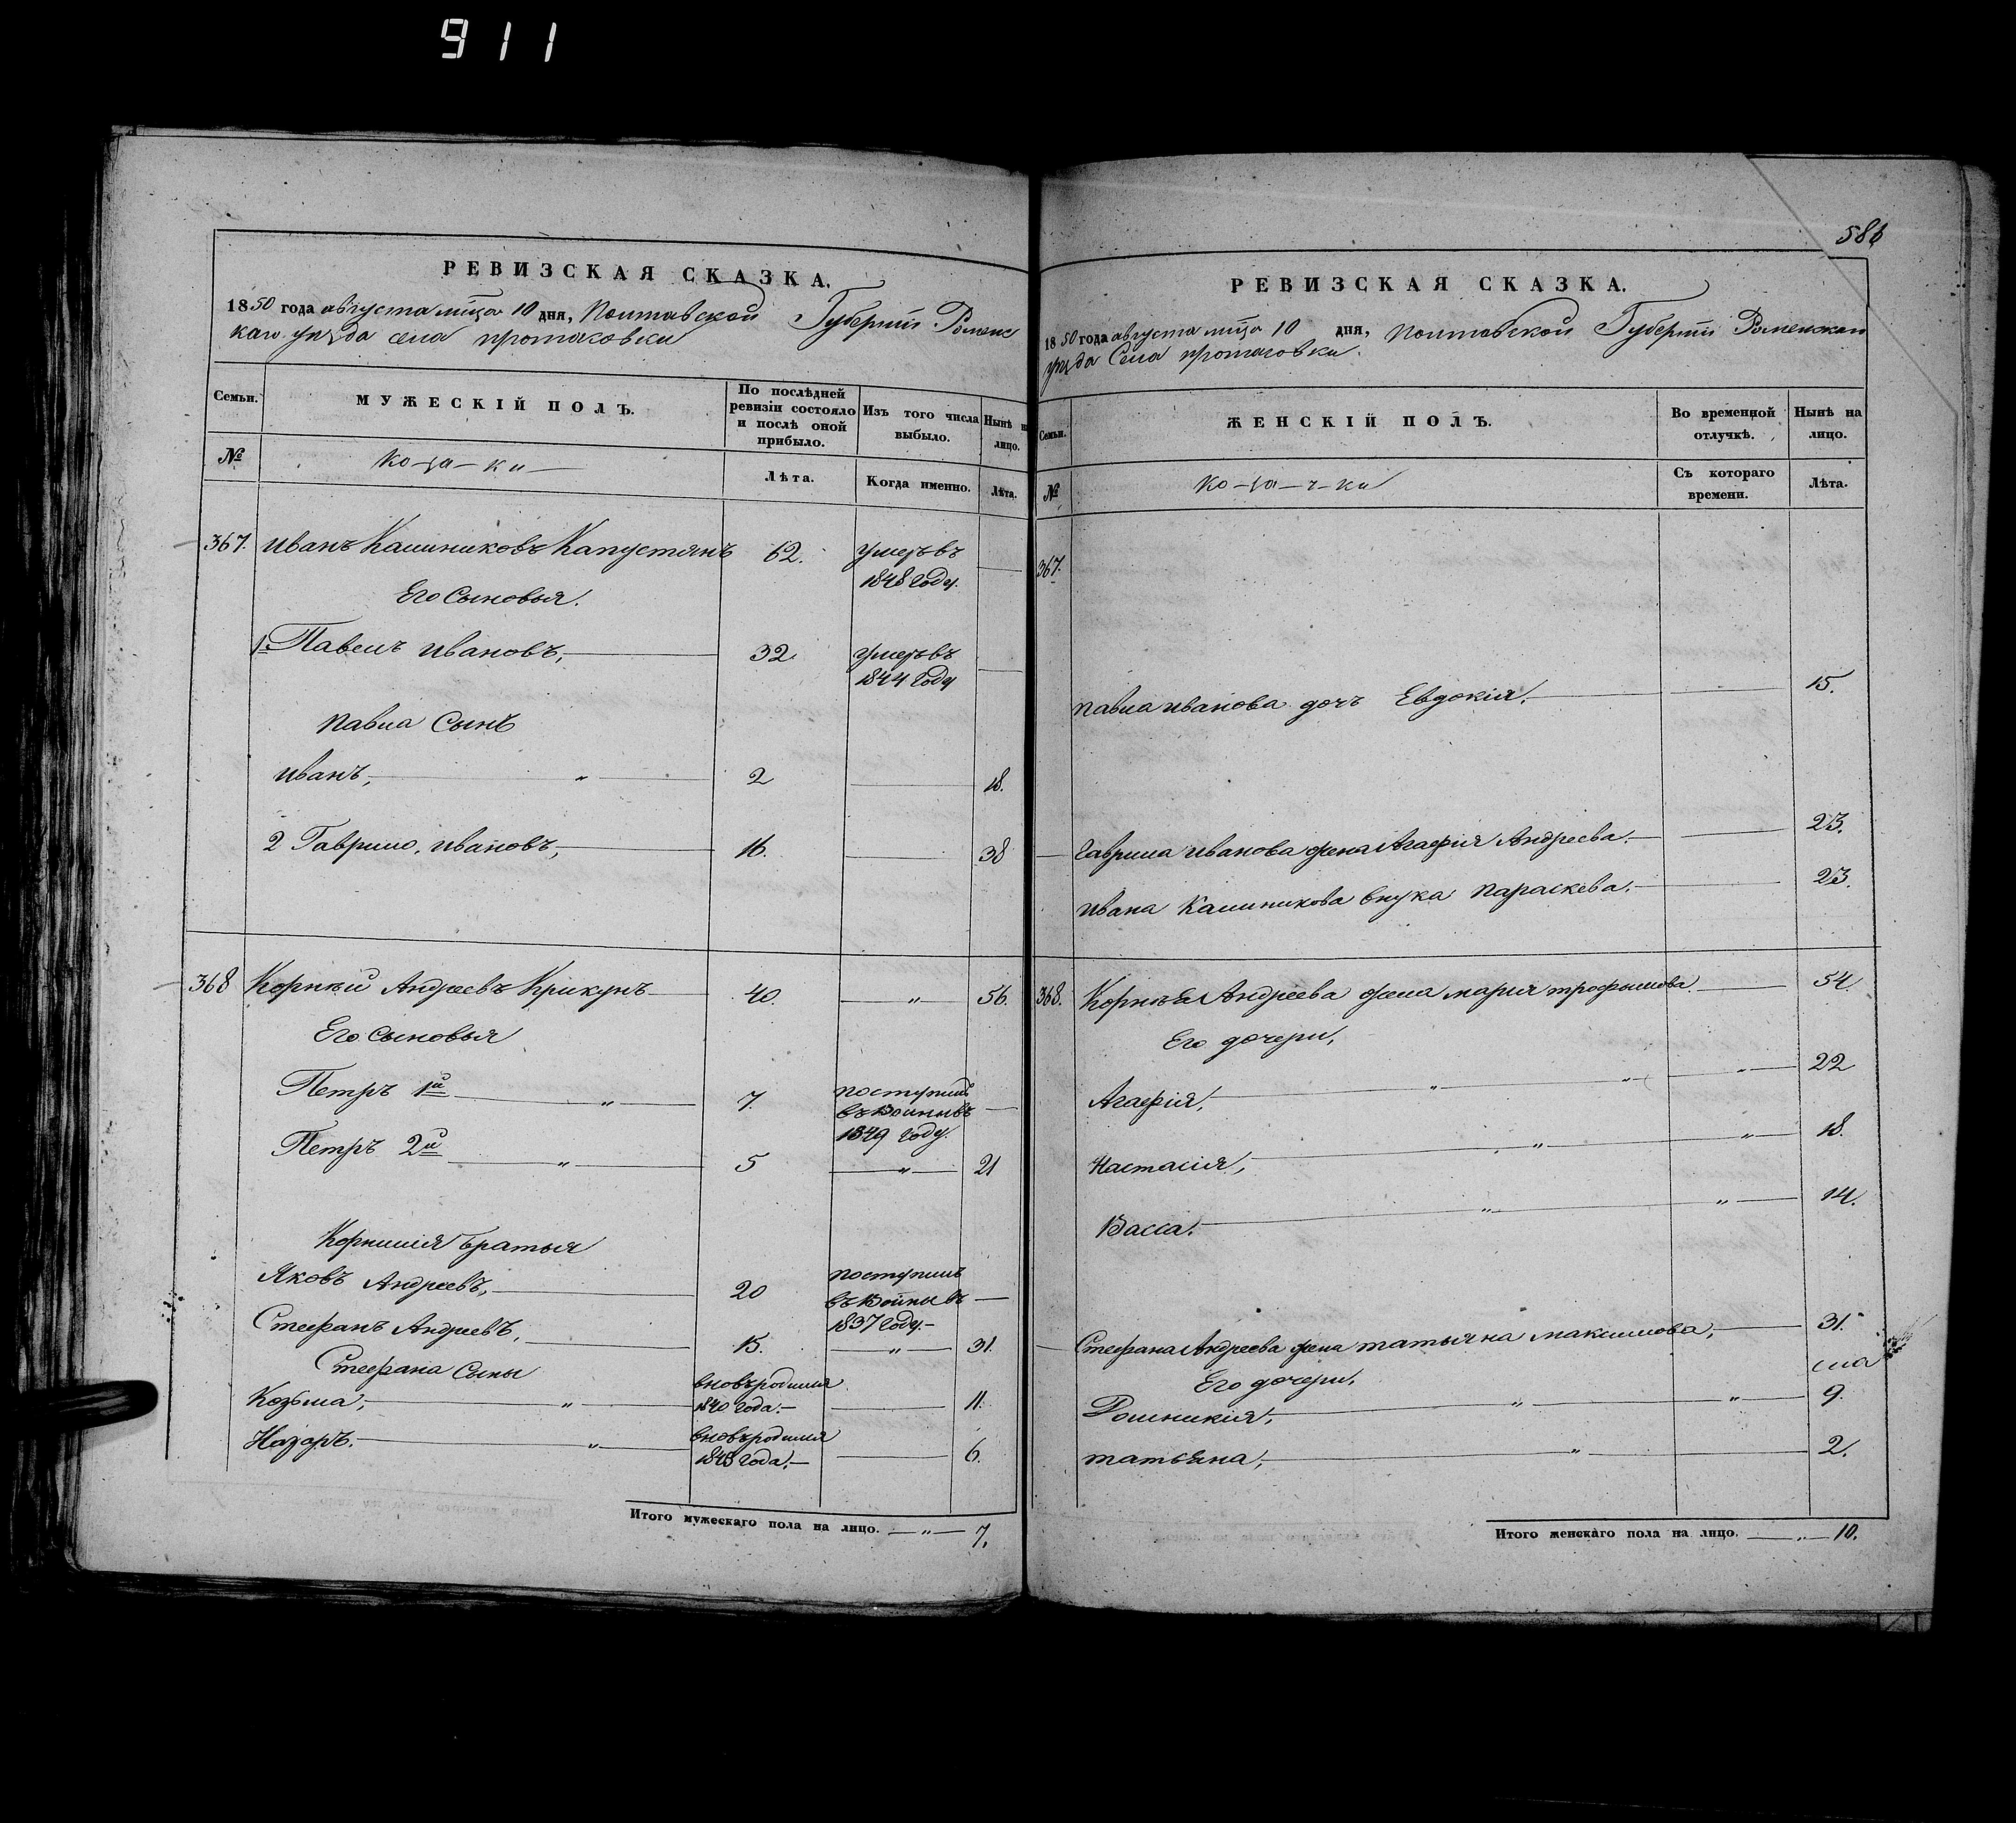 911
РЕВИЗСКАЯ СКАЗКА.
1850 года августа мца 10 дня, Полтавской Губернii Роменс
каго уезда села протасовки
Семьи.
МУЖЕСКІЙ ПОЛЪ.
По послѣдней ревизіи состояло и послѣ оной прибыло.
Изъ того числа выбыло.
Нынѣ на лицо.
№
Ко-за-ки
Лѣта.
Когда именно.
Лѣта.
367. Иванъ Калиниковъ Капустянъ 62. умеръ въ
1848 году.
Его Сыновья.
1. Павелъ Ивановъ, 32. умеръ въ
1844 году
Павла Сынъ
Иванъ, " 2 18.
2 Гаврило, Ивановъ, 16. 38
368 Корнѣй Андреевъ Крикунъ 40. " 56.
Его Сыновья
Петръ 1й " 7. поступилъ
въ Воины въ
1849 году.
Петръ 2й " 5 " 21
Корнилія Братья
Яковъ Андреевъ, 20 поступилъ
въ Воины въ
1837 году.
Стефанъ Андреевъ, 15. " 31.
Стефана Сыны
Козьма, " вновьродился
1840 года. 11.
Назаръ. " вновьродился
1845 года. 6.
Итого мужескаго пола на лицо. " 7.
586
РЕВИЗСКАЯ СКАЗКА.
1850 года августа мца 10 дня, Полтавской Губернii Роменскаго
уезда Села протасовки.
Семьи.
ЖЕНСКІЙ ПОЛЪ.
Во временной отлучкѣ.
Нынѣ на лицо.
№
Ко-за-ч-ки
Съ котораго времени.
Лѣта.
367.
Павла Иванова дочь Евдокія. 15.
Гаврила Иванова жена Агафія Андреева. 23.
Ивана Калиникова внука Параскева. 23.
368. Корнѣя Андреева жена Марія трофымова 54.
Его дочери,
Агафія, " " " 22
Настасія, " " 18.
Васса. " " 14.
Стефана Андреева жена татьяна максимова, 31.
Его дочери,
Домникия, " " 9.
татьяна, " 2.
Итого женскаго пола на лицо. " 10.